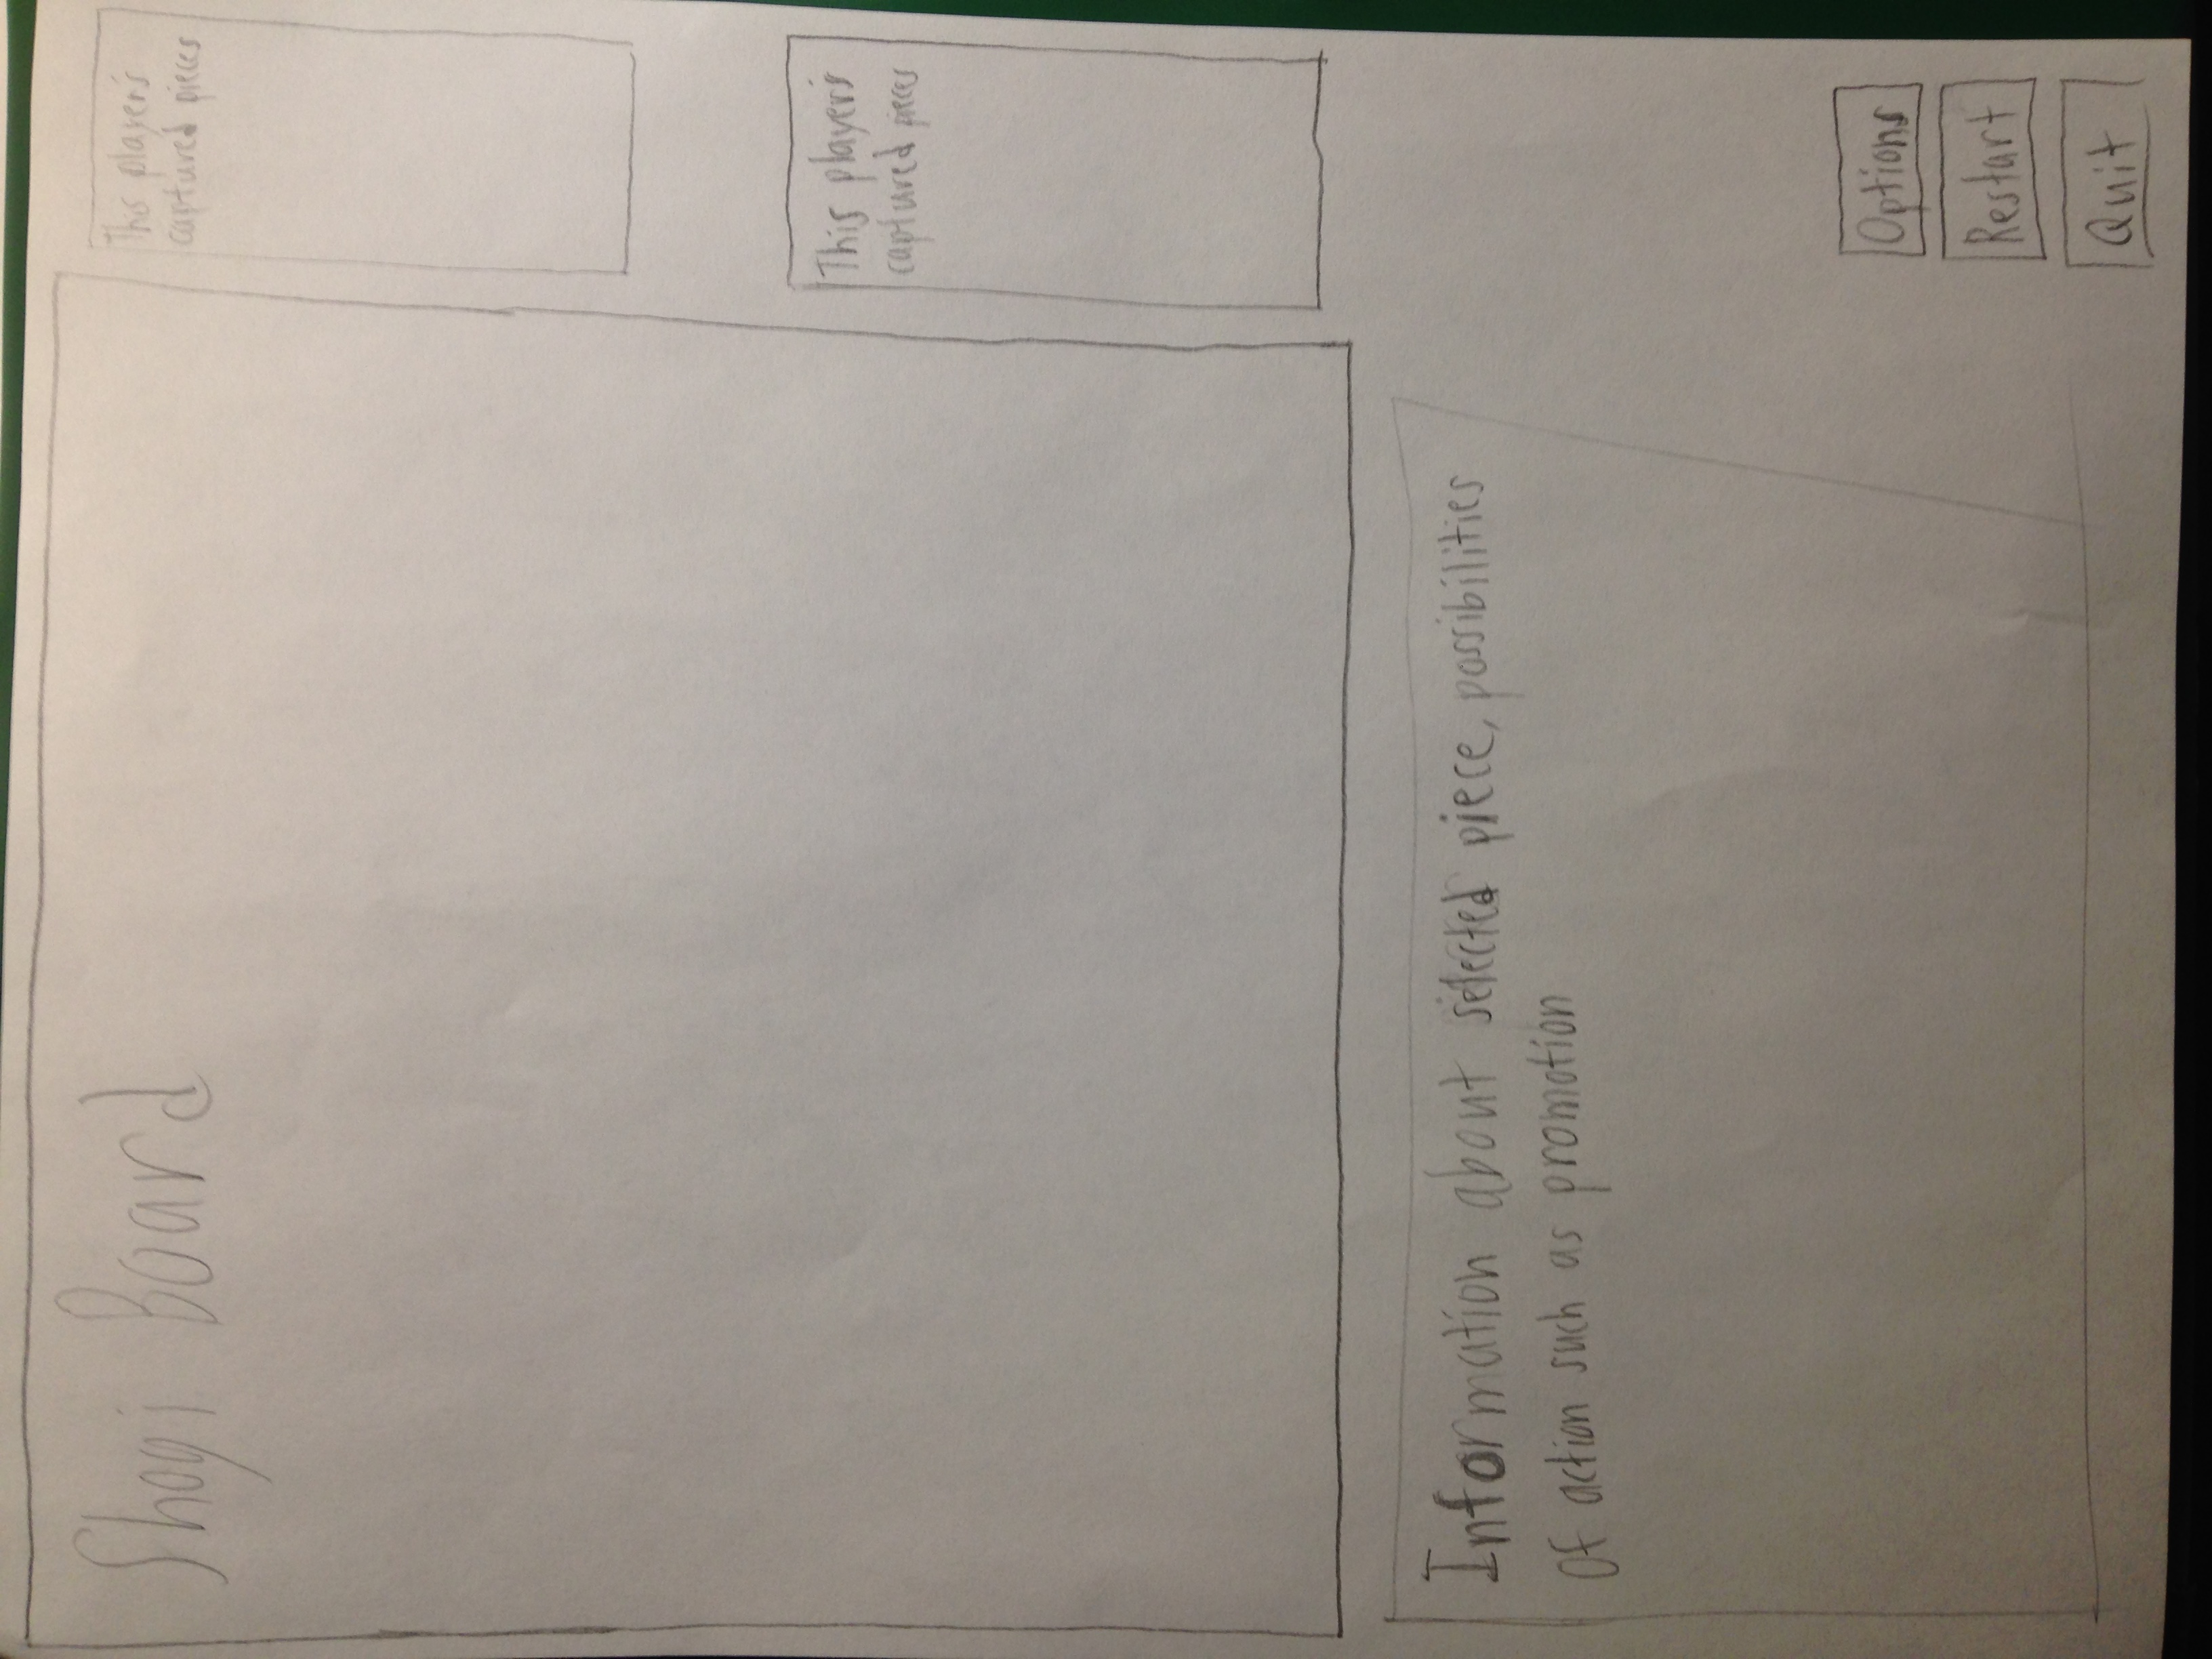 Shogi Board
This player's
captured pieces
This player's
captured pieces
Information about selected piece, possibilities
of action such as promotion
Options
Restart
Quit